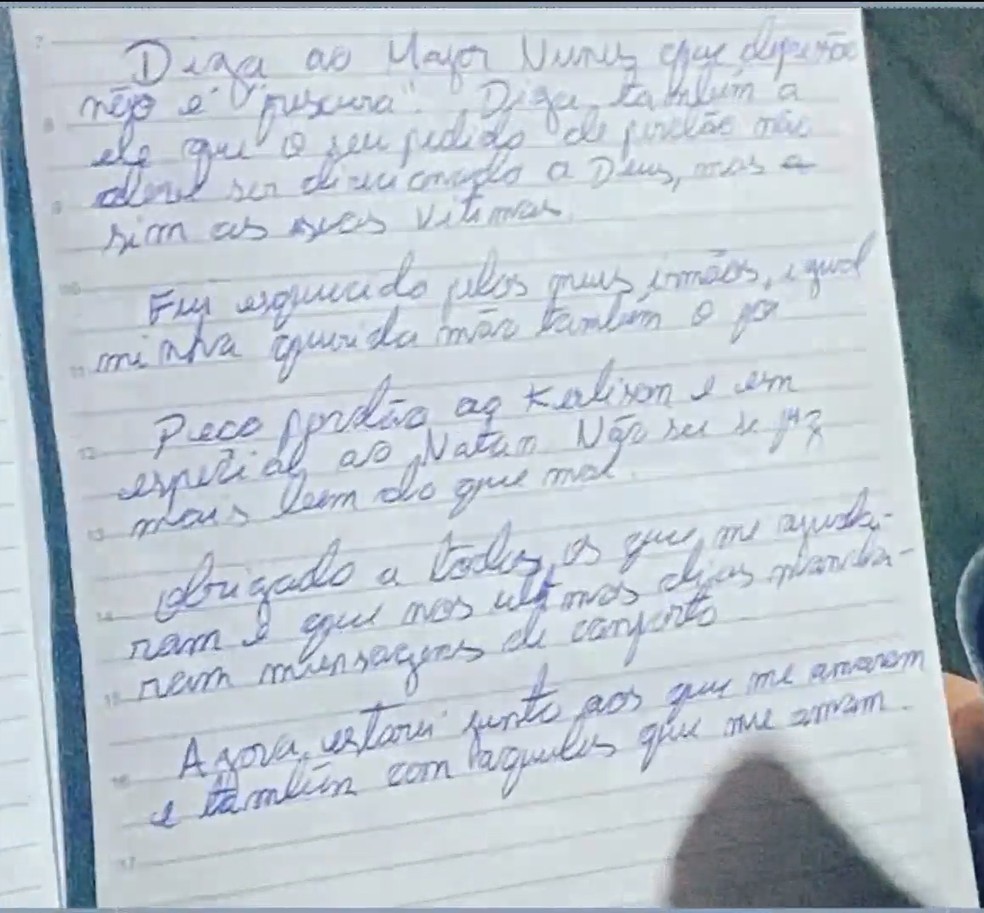 Diga ao Major Nunes que depressão
não é "frescura". Diga também a
ele que o seu pedido de perdão não
deve ser direcionado a Deus, mas a
sim as suas vitimas.
Fui esquecido pelos meus irmãos, igual
minha querida mãe também o foi
Peço perdão ao Kerlisom e em
especial ao Natan. Não sei se fiz
mais bem do que mal.
Obrigado a todos os que me ajuda-
ram e que nos ultimos dias manda-
ram mensagens de conforto
Agora, estarei junto aos que me amaram
e também com aqueles que me amam.